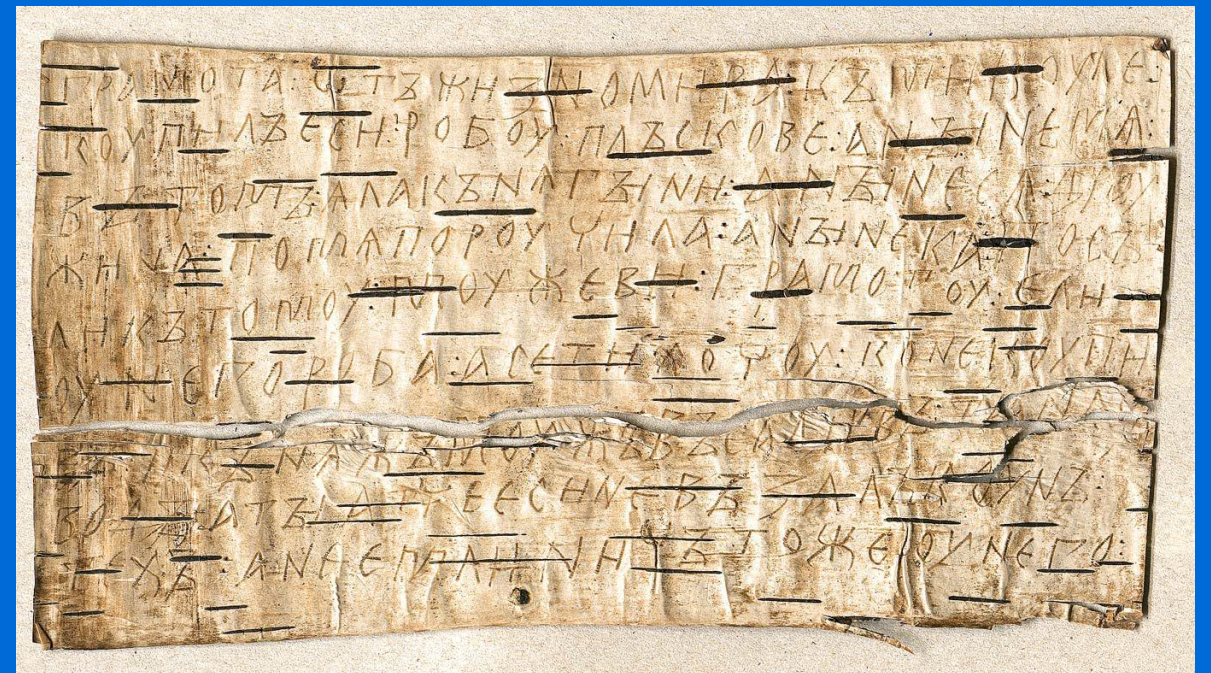 ГРАМОТА : ѠТЪ ЖИЗНОМИРА : КЪ МИКОУЛЕ :
КОУПИЛЪ ЕСИ : РОБОУ : ПЛЪСКОВЕ : А НЪІНЕ МѦ :
ВЪ ТОМЪ : АЛА КЪНѦГЪІНИ : А НЪІНЕ СѦ ДРОУ
ЖИНА : ПО МѦ ПОРОУЧИЛА : А НЪІНЕ КА : ПОСЪ
ЛИ КЪ ТОМОУ : МОУЖЕВИ : ГРАМОТОУ : Е ЛИ
ОУ НЕГО РОБА : А СЕ ТИ ХОЧОУ : КОНЕ КОУПИ
ВЪ : И КЪНѦЖЪ МОУЖЪ ВЪСАДИВЪ : ТА НА СЪ
ВОДЪІ : А ТЪІ АТЧЕ ЕСИ НЕ ВЪЗАЛЪ КОУНЪ :
ТЕХЪ : А НЕ ЕМЛИ : НИЧЪТОЖЕ ОУ НЕГО :